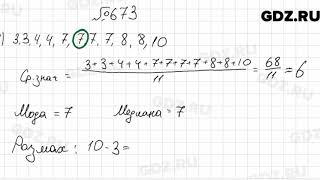 GDZ.RU
№673
) 3,3,4,4,7,7,7,7,8,8,10
Ср.знач = 3+3+4+4+7+7+7+7+8+8+10 / 11 = 68/11 = 6
Мода = 7 Медиана = 7
Размах: 10-3=